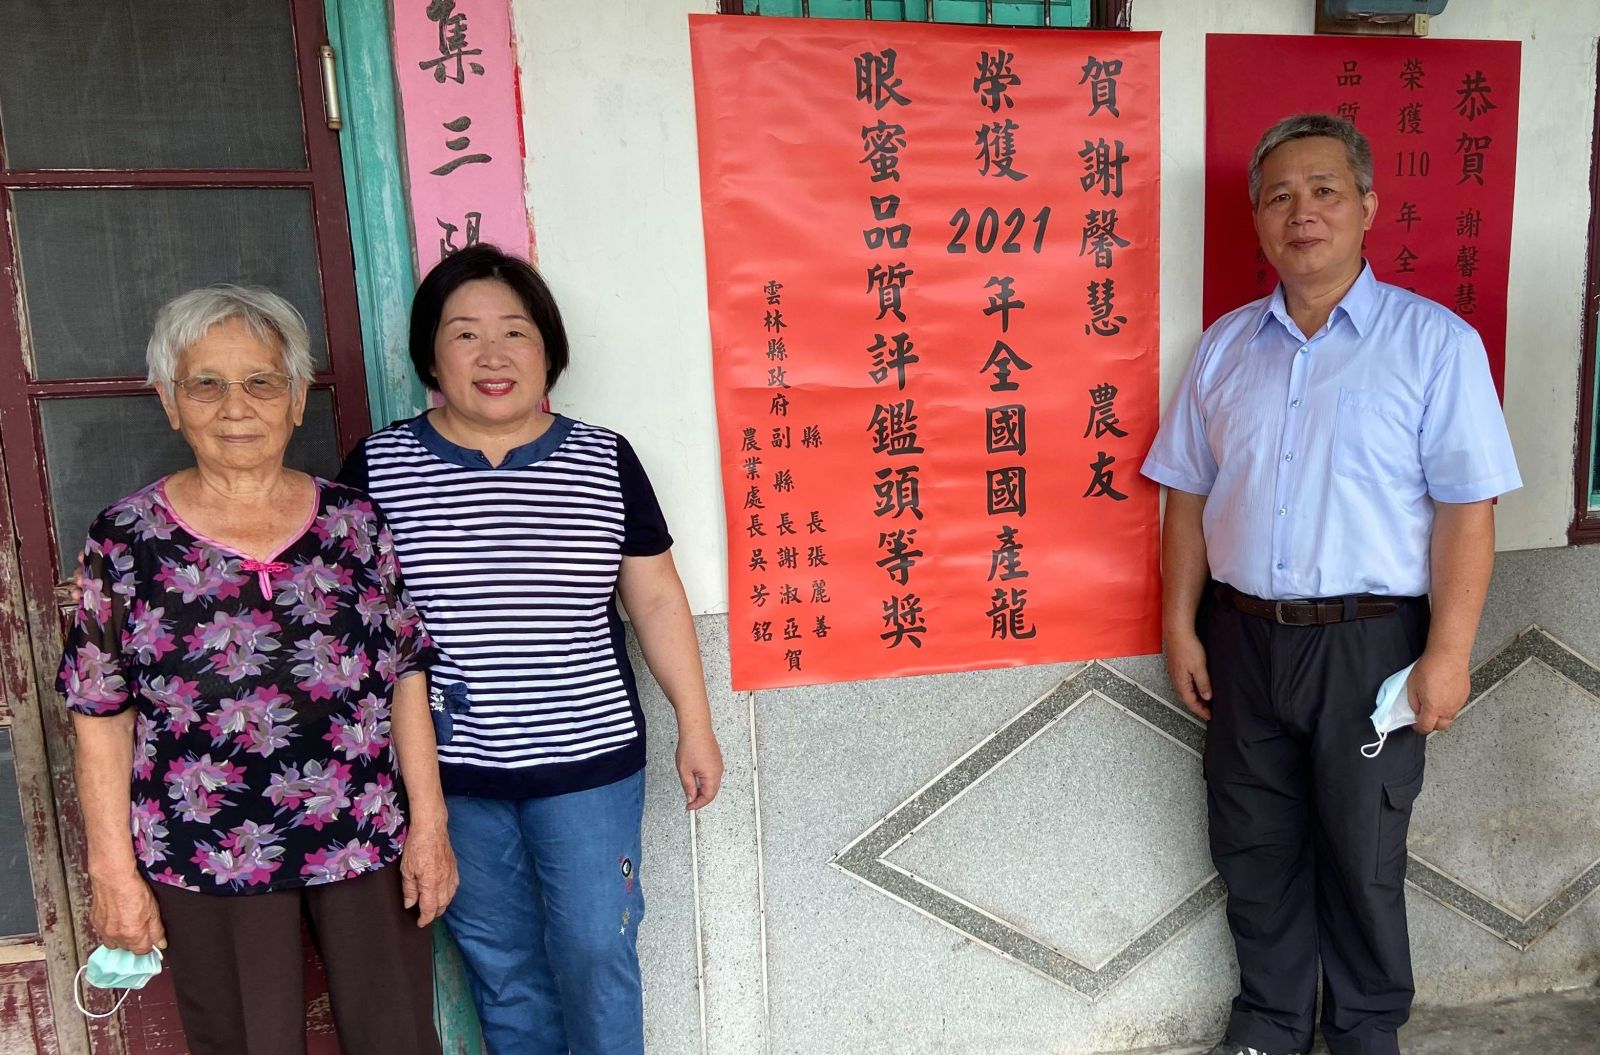 恭賀 謝馨慧
榮獲110年全
品質
賀謝馨慧 農友
榮獲2021年全國國產龍
眼蜜品質評鑑頭等獎
縣 長張麗善
雲林縣政府副縣長謝淑亞賀
農業處長吳芳銘
集三